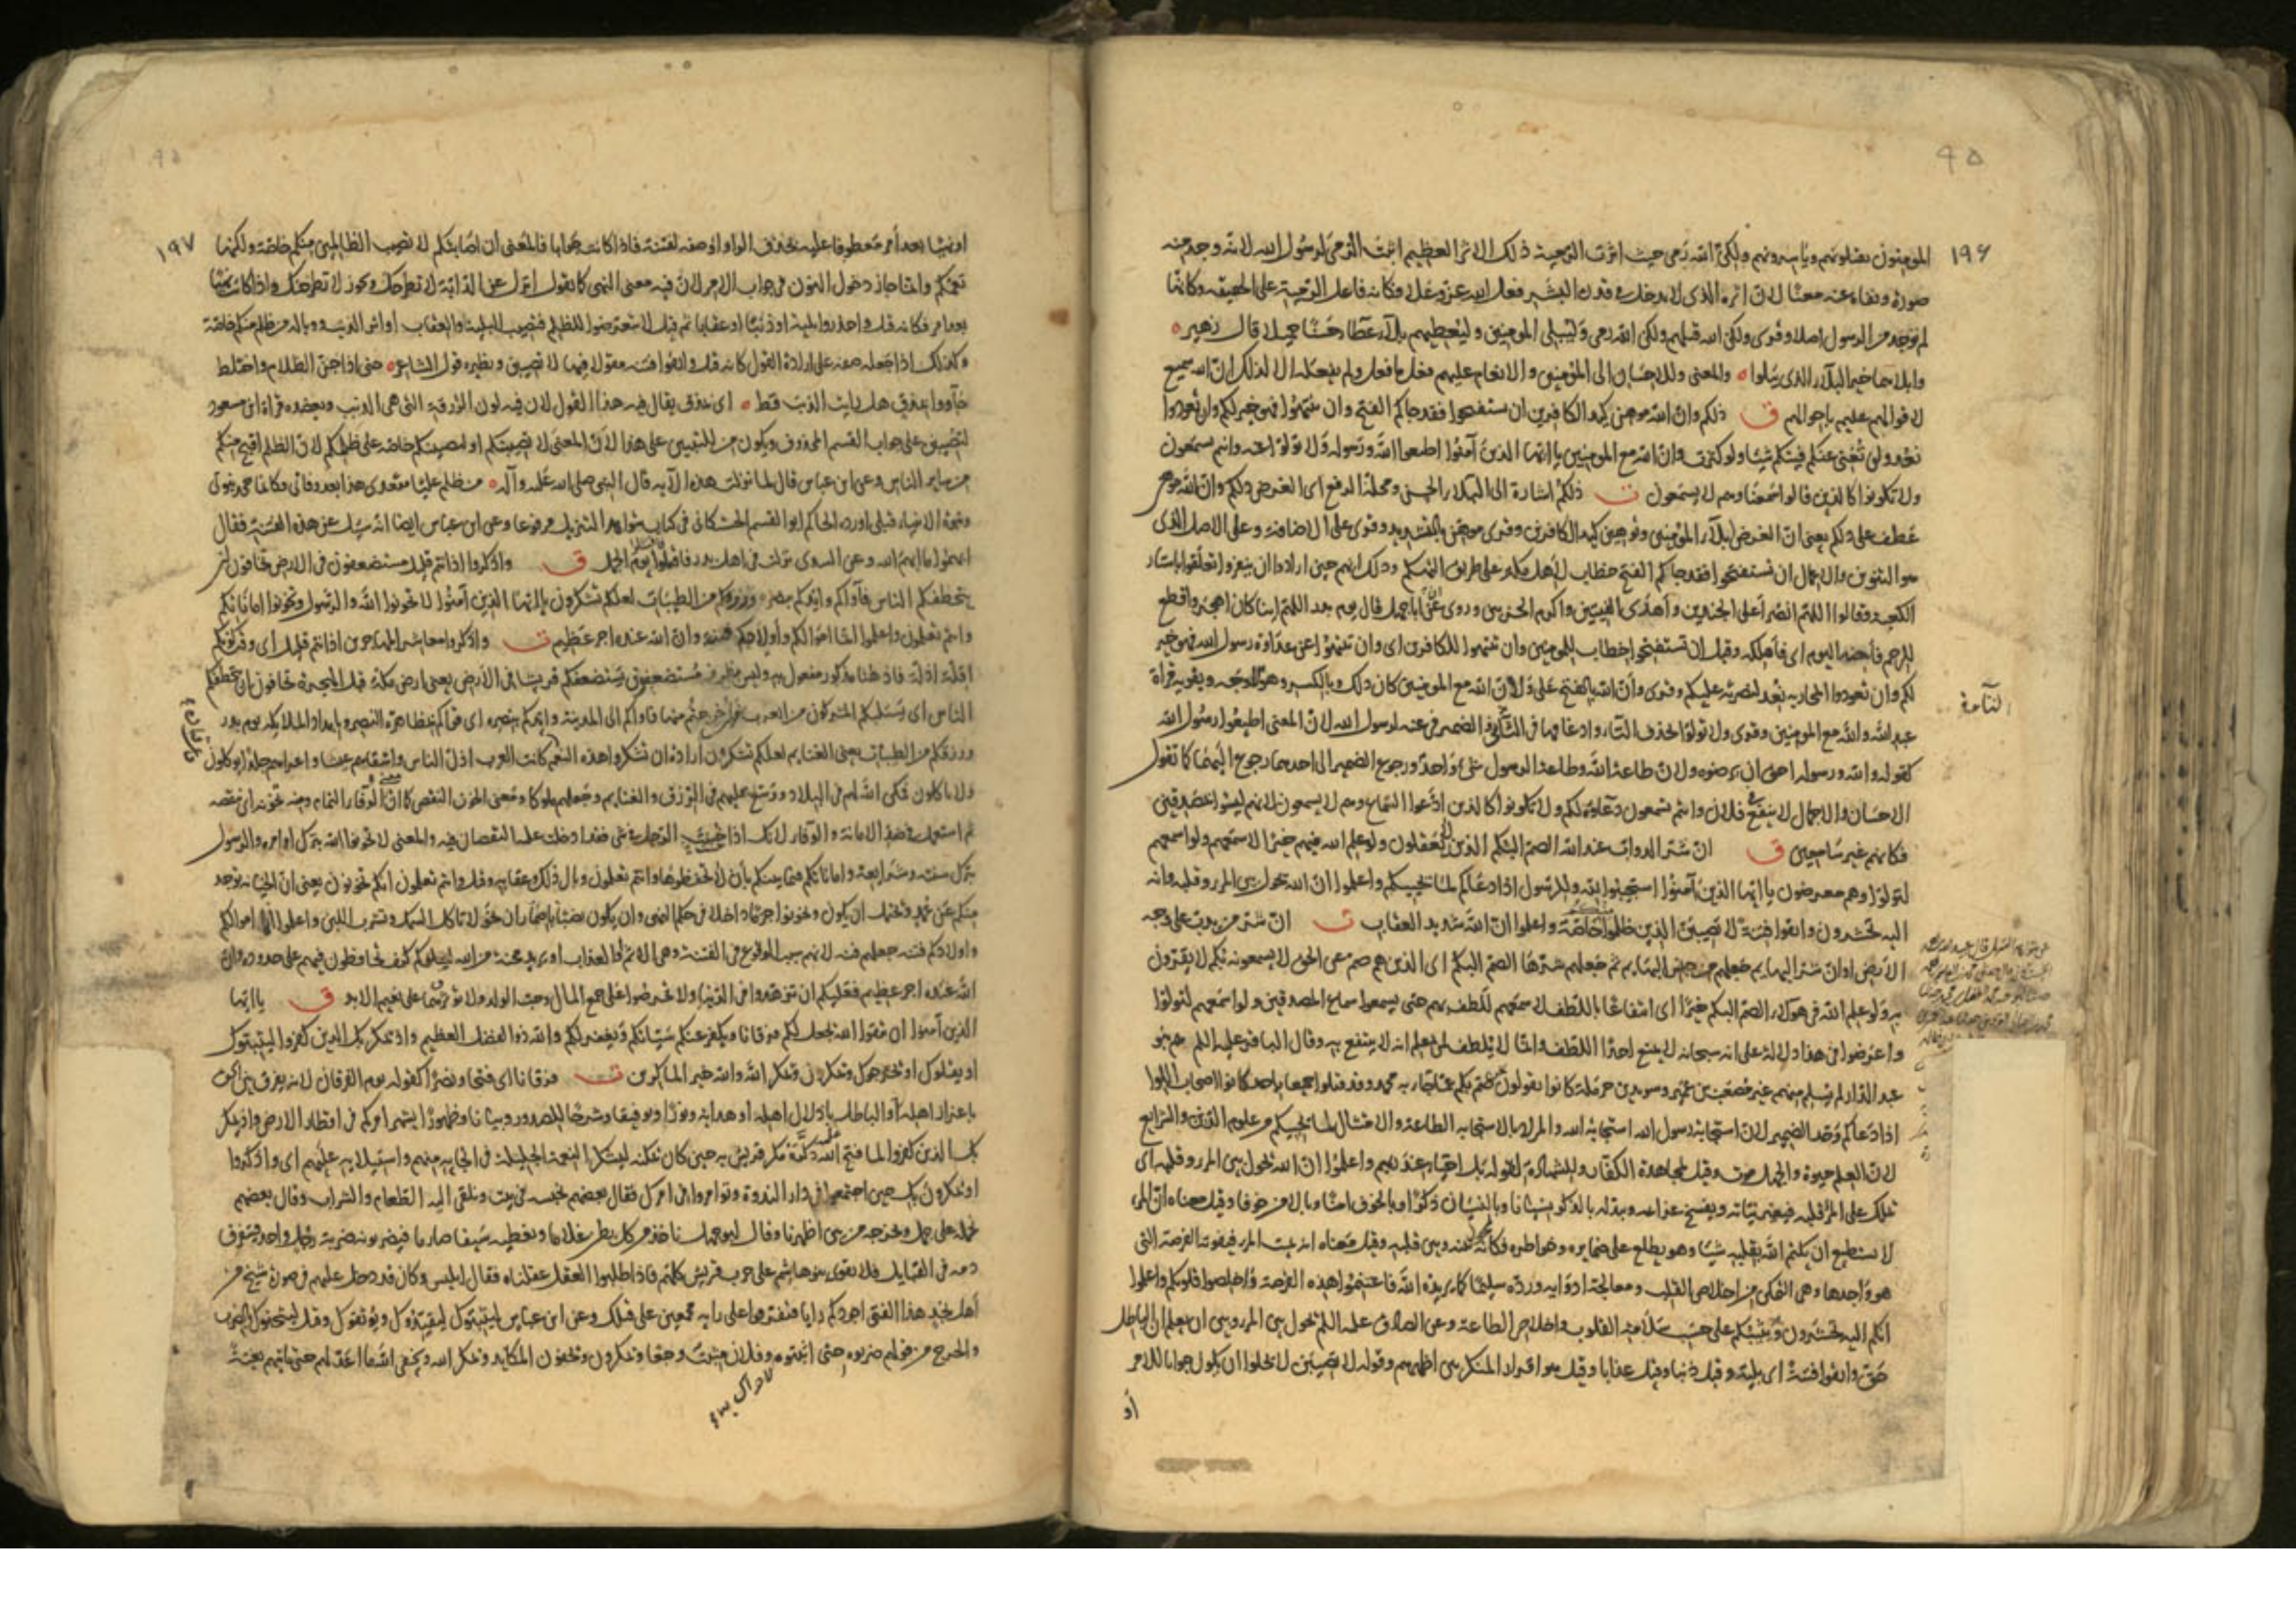 ١٩۶
المؤمنون بقتلونهم وياسرونهم ولكن الله رمى حيث اثرت الرمية ذلك الاثر العظيم اثبت الرمى لرسول الله لانه وجد منه
صورة ونفاه عنه معنا لان اثره الذى لا يدخل فى قدرة البشر فعل الله عز وعلا فكانه فاعل الرمية على الحقيقة وكانها
لم توجد من الرسول اصلا وقرى ولكن الله قتلهم ولكن الله رمى وليبلى المؤمنين وليعطيهم بلاء عطاء حسنا جميلا قال زهير
وابلاهما خير البلاء الذى يبلوا والمعنى وللاحسان الى المؤمنين والانعام عليهم فعل ما فعل ولم يفعله الا لذلك ان الله سميع
لاقوالهم عليم باحوالهم ق ذلكم وان الله موهن كيد الكافرين ان تستفتحوا فقد جاكم الفتح وان تنتهوا فهو خير لكم وان تعودوا
نعد ولن تغنى عنكم فئتكم شيئا ولو كثرت وان الله مع المؤمنين يا ايها الذين آمنوا اطيعوا الله ورسوله ولا تولوا عنه وانتم تسمعون
ولا تكونوا كالذين قالوا سمعنا وهم لا يسمعون ت ذلكم اشارة الى البلاء الحسن ومحله الرفع اى الغرض ذلكم وان الله موهن
عطف على ذلكم يعنى ان الغرض ابلاء المؤمنين وتوهين كيد الكافرين وقرى موهن بالتشديد وقرى على الاضافة وعلى الاصل الذى
هو التنوين والاعمال ان تستفتحوا فقد جاكم الفتح خطاب لاهل مكة على طريق التهكم وذلك انهم حين ارادوا ان ينفروا تعلقوا باستار
الكعبة وقالوا اللهم انصر اعلى الجندين واهدى الفئتين واكرم الحزبين وروى ان ابا جهل قال يوم بدر اللهم اينا كان اهجر واقطع
للرحم فاحنه اليوم اى فاهلكه وقيل ان تستفتحوا خطاب للمؤمنين وان تنتهوا للكافرين اى وان تنتهوا عن عداوة رسول الله فهو خير
لكم وان تعودوا لمحاربته نعد لنصرته عليكم وقرى وان الله بالفتح على ولان الله مع المؤمنين كان ذلك وبالكسر وهو الاوجه ويقويه قراة
عبد الله والله مع المؤمنين وقرى ولا تولوا بحذف التاء وادغامها فى التاء والضمير فى عنه لرسول الله لان المعنى اطيعوا رسول الله
كقوله والله ورسوله احق ان يرضوه ولان طاعة الله وطاعة الرسول شئ واحد ورجوع الضمير الى احدهما رجوع اليهما كما تقول
الاحسان والاجمال لا ينفع فى فلان وانتم تسمعون دعاءه لكم ولا تكونوا كالذين ادعوا السماع وهم لا يسمعون لانهم ليسوا بمصدقين
فكانهم غير سامعين ق ان شر الدواب عند الله الصم البكم الذين لا يعقلون ولو علم الله فيهم خيرا لاسمعهم ولو اسمعهم
لتولوا وهم معرضون يا ايها الذين آمنوا استجيبوا لله وللرسول اذا دعاكم لما يحييكم واعلموا ان الله يحول بين المرء وقلبه وانه
اليه تحشرون واتقوا فتنة لا تصيبن الذين ظلموا منكم خاصة واعلموا ان الله شديد العقاب ت ان شر من يدب على وجه
الارض او ان شر البهايم جعلهم من جنس البهايم ثم جعلهم شرها الصم البكم اى الذين هم صم عن الحق لا يسمعونه بكم لا يقرون
به ولو علم الله فى هؤلاء الصم البكم خيرا اى انتفاعا باللطف لاسمعهم للطف بهم حتى يسمعوا سماع المصدقين ولو اسمعهم لتولوا
واعرضوا وفى هذا دلالة على انه سبحانه لا يمنع احدا اللطف وانما لا يلطف لمن يعلم انه لا ينتفع به وقال الباقر عليه السلم هم بنو
عبد الدار لم يسلم منهم غير مصعب بن عمير وسويد بن حرملة كانوا يقولون نحن صم بكم عما جاء به محمد وقد قتلوا جميعا باحد كانوا اصحاب اللوا
اذا دعاكم وحد الضمير لان استجابة رسول الله استجابة الله والمراد بالاستجابة الطاعة والامتثال لما يحييكم من علوم الدين والشرايع
لان العلم حيوة والجهل موت وقيل لمجاهدة الكفار وللشهادة لقوله بل احياء عند ربهم واعلموا ان الله يحول بين المرء وقلبه اى
يملك على المرء قلبه فيغير نياته ويفسخ عزايمه ويبدله بالذكر نسيانا وبالنسيان ذكرا وبالخوف امنا وبالامن خوفا وقيل معناه ان المرء
لا يستطيع ان يكتم الله بقلبه شيئا وهو يطلع على ضمايره وخواطره فكانه حال بينه وبين قلبه وقيل معناه انه يميت المرء فيفوته الفرصة التى
هو واجدها وهى التمكن من اخلاص القلب ومعالجة ادوايه ورده سليما كما يريده الله فاغتنموا هذه الفرصة واخلصوا قلوبكم واعلموا
انكم اليه تحشرون فيثيبكم على حسب سلامة القلوب واخلاص الطاعة وعن الصادق عليه السلم يحول بين المرء وبين ان يعلم ان الباطل
حق واتقوا فتنة اى بلية وقيل ذنبا وقيل عذابا وقيل هو اقرار المنكر بين اظهرهم وقوله لا تصيبن لا يخلوا ان يكون جوابا للامر
او
١٩٧
او نهيا بعد امر معطوفا عليه بحذف الواو او صفة لفتنة فاذا كانت جوابا فالمعنى ان اصابتكم لا تصيب الظالمين منكم خاصة ولكنها
تعمكم وانما جاز دخول النون فى جواب الامر لان فيه معنى النهى كما تقول انزل عن الدابة لا تطرحك ويجوز لا تطرحنك واذا كانت نهيا
بعد امر فكانه قيل واحذروا بلية او ذنبا او عقابا ثم قيل لا تتعرضوا للظلم فتصيب البلية والعقاب او اثر الذنب ووباله من ظلم منكم خاصة
وكذلك اذا جعله صفة على ارادة القول كانه قيل واتقوا فتنة مقولا فيها لا تصيبن ونظيره قول الشاعر حتى اذا جن الظلام واختلط
جاؤوا بمذق هل رايت الذئب قط اى بمذق يقال فيه هذا القول لان فيه لون الزرقة التى هى الذئب ويعضده قراة ابن مسعود
لتصيبن على جواب القسم المحذوف ويكون من للتبيين على هذا لان المعنى لا تصيبنكم او لتصيبنكم خاصة على ظلمكم لان الظلم اقبح منكم
من ساير الناس وعن ابن عباس قال لما نزلت هذه الآية قال النبى صلى الله عليه وآله من ظلم عليا مقعدى هذا بعد وفاتى فكانما جحد نبوتى
ونبوة الانبياء قبلى اورده الحاكم ابو القسم الحسكانى فى كتاب شواهد التنزيل مرفوعا وعن ابن عباس ايضا انه سئل عن هذه الفتنة فقال
ابهموا ما ابهم الله وعن السدى نزلت فى اهل بدر فاقتتلوا يوم الجمل ق واذكروا اذ انتم قليل مستضعفون فى الارض تخافون ان
يتخطفكم الناس فآواكم وايدكم بنصره ورزقكم من الطيبات لعلكم تشكرون يا ايها الذين آمنوا لا تخونوا الله والرسول وتخونوا اماناتكم
وانتم تعلمون واعلموا انما اموالكم واولادكم فتنة وان الله عنده اجر عظيم ت واذكروا معاشر المهاجرين اذ انتم قليل اى وقت كونكم
اقلة اذلة فاذ هنا مذكور مفعول به وليس بظرف مستضعفون يستضعفكم قريش فى الارض يعنى ارض مكة قبل الهجرة تخافون ان يتخطفكم
الناس اى يستلبكم المشركون من العرب ان خرجتم منها فآواكم الى المدينة وايدكم بنصره اى قواكم بمظاهرة النصر وبامداد الملايكة يوم بدر
ورزقكم من الطيبات يعنى الغنايم لعلكم تشكرون ارادة ان تشكروا هذه النعم كانت العرب اذل الناس واشقاهم عيشا واعراهم جلدا يوكلون
ولا ياكلون فمكن الله لهم فى البلاد ووسع عليهم فى الرزق والغنايم وجعلهم ملوكا ومعنى الخون النقص كما ان معنى الوفاء التمام ومنه تخونه اى تنقصه
ثم استعمل فى ضد الامانة والوفاء لانك اذا خنت الرجل فى شئ فقد ادخلت عليه النقصان فيه والمعنى لا تخونوا الله بترك اوامره والرسول
بترك سننه وشرايعه واماناتكم فيما بينكم بان لا تحفظوها وانتم تعلمون وبال ذلك وعقابه وقيل وانتم تعلمون انكم تخونون يعنى ان الخيانة توجد
منكم عن عمد ويحتمل ان يكون وتخونوا جزما داخلا فى حكم النهى وان يكون نصبا باضمار ان نحو لا تاكل السمك وتشرب اللبن واعلموا انما اموالكم
واولادكم فتنة جعلهم فتنة لانهم سبب الوقوع فى الفتنة وهى الاثم او العذاب او يريد محنة من الله ليبلوكم كيف تحافظون فيهم على حدوده وان
الله عنده اجر عظيم فعليكم ان تزهدوا فى الدنيا ولا تحرصوا على جمع المال وحب الولد ولا تؤثروهما على نعيم الابد ق يا ايها
الذين آمنوا ان تتقوا الله يجعل لكم فرقانا ويكفر عنكم سيئاتكم ويغفر لكم والله ذو الفضل العظيم واذ يمكر بك الذين كفروا ليثبتوك
او يقتلوك او يخرجوك ويمكرون ويمكر الله والله خير الماكرين ت فرقانا اى فتحا ونصرا كقوله يوم الفرقان لانه يفرق بين الحق
باعزاز اهله والباطل باذلال اهله او هداية ونورا وتوفيقا وشرحا للصدور او بيانا وظهورا يشهر امركم فى اقطار الارض واذ يمكر
بك الذين كفروا لما فتح الله عليه ذكره مكر قريش به حين كان بمكة ليشكر النعمة الجليلة فى انجايه منهم واستيلايه عليهم اى واذكروا
اذ يمكرون بك حين اجتمعوا فى دار الندوة وتوامروا فى امرك فقال بعضهم نحبسه فى بيت ونلقى اليه الطعام والشراب وقال بعضهم
نحمله على جمل ونخرجه من بين اظهرنا وقال ابو جهل ناخذ من كل بطن غلاما ونعطيه سيفا صارما فيضربونه ضربة رجل واحد فيتفرق
دمه فى القبايل فلا يقوى بنو هاشم على حرب قريش كلهم فاذا طلبوا العقل عقلناه فقال ابليس وكان قد دخل عليهم فى صورة شيخ من
اهل نجد هذا الفتى اجودكم رايا فتفرقوا على رايه مجمعين على قتله وعن ابن عباس ليثبتوك ليقيدوك ويوثقوك وقيل ليثخنوك بالضرب
والجرح من قولهم ضربوه حتى اثبتوه وفلان مثبت وجعا ويمكرون ويخفون المكايد ويمكر الله ويخفى الله ما اعد لهم حتى ياتيهم بغتة